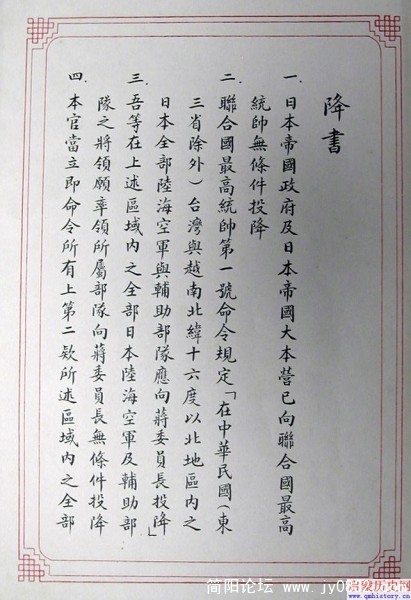 降書
一. 日本帝國政府及日本帝國大本營已向聯合國最高
統帥無條件投降
二. 聯合國最高統帥第一號命令規定「在中華民國(東
三省除外)台灣與越南北緯十六度以北地區內之
日本全部陸海空軍與輔助部隊應向蔣委員長投降」
三. 吾等在上述區域內之全部日本陸海空軍及輔助部
隊之將領願率領所屬部隊向蔣委員長無條件投降
四. 本官當立即命令所有上第二款所述區域內之全部
简阳论坛 www.jy0832.com
历史网
www.qmhistory.cn